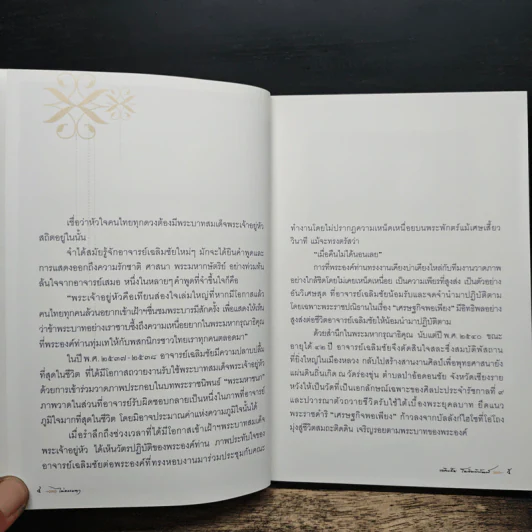 เชื่อว่าหัวใจคนไทยทุกดวงต้องมีพระบาทสมเด็จพระเจ้าอยู่หัว
สถิตอยู่ในนั้น
จำได้สมัยรู้จักอาจารย์เฉลิมชัยใหม่ๆ มักจะได้ยินคำพูดและ
การแสดงออกถึงความรักชาติ ศาสนา พระมหากษัตริย์ อย่างท่วมท้น
ล้นใจจากอาจารย์เสมอ หนึ่งในหลายๆ คำพูดที่จำขึ้นใจก็คือ
"พระเจ้าอยู่หัวคือเทียนส่องใจเล่มใหญ่ที่หากมีโอกาสแล้ว
คนไทยทุกคนล้วนอยากเข้าเฝ้าฯชื่นชมพระบารมีสักครั้ง เพื่อแสดงให้เห็น
ว่าข้าพระบาทอย่างเราซาบซึ้งถึงความเหนื่อยยากในพระมหากรุณาธิคุณ
ที่พระองค์ท่านทุ่มเทให้กับพสกนิกรชาวไทยเราทุกคนตลอดมา"
ในปี พ.ศ. ๒๕๓๗-๒๕๓๘ อาจารย์เฉลิมชัยมีความปลาบปลื้ม
ที่สุดในชีวิต ที่ได้มีโอกาสถวายงานรับใช้พระบาทสมเด็จพระเจ้าอยู่หัว
ด้วยการเข้าร่วมวาดภาพประกอบในบทพระราชนิพนธ์ "พระมหาชนก"
ภาพวาดในส่วนที่อาจารย์รับผิดชอบกลายเป็นหนึ่งในภาพที่อาจารย์
ภูมิใจมากที่สุดในชีวิต โดยมิอาจประมาณค่าแห่งความภูมิใจนั้นได้
เมื่อรำลึกถึงช่วงเวลาที่ได้มีโอกาสเข้าเฝ้าฯพระบาทสมเด็จ
พระเจ้าอยู่หัว ได้เห็นวัตรปฏิบัติของพระองค์ท่าน ภาพประทับใจของ
อาจารย์เฉลิมชัยต่อพระองค์ที่ทรงหอบงานมาร่วมประชุมกับคณะ
ทำงานโดยไม่ปรากฏความเหนื่อยบนพระพักตร์แม้เศษเสี้ยว
วินาที แม้จะทรงตรัสว่า
"เมื่อคืนไม่ได้นอนเลย"
การที่พระองค์ท่านทรงงานเคียงบ่าเคียงไหล่กับทีมงานวาดภาพ
อย่างใกล้ชิดโดยไม่เคยเหนื่อย เป็นความเพียรที่สูงส่ง เป็นตัวอย่าง
อันวิเศษสุด ที่อาจารย์เฉลิมชัยน้อมรับและจดจำนำมาปฏิบัติตาม
โดยเฉพาะพระราชปณิธานในเรื่อง "เศรษฐกิจพอเพียง" มีอิทธิพลอย่าง
สูงส่งต่อชีวิตอาจารย์เฉลิมชัยให้น้อมนำมาปฏิบัติตาม
ด้วยสำนึกในพระมหากรุณาธิคุณ นับแต่ปี พ.ศ. ๒๕๔๐ ขณะ
อายุได้ ๔๒ ปี อาจารย์เฉลิมชัยจึงตัดสินใจสละซึ่งสมบัติพัสถาน
ที่ยิ่งใหญ่ในเมืองหลวง กลับไปสร้างสานงานศิลป์เพื่อพุทธศาสนายัง
แผ่นดินถิ่นเกิด ณ วัดร่องขุ่น ตำบลป่าอ้อดอนชัย จังหวัดเชียงราย
หวังให้เป็นวัดที่เป็นเอกลักษณ์เฉพาะของศิลปะประจำรัชกาลที่ ๙
และปวารณาตัวถวายชีวิตรับใช้ใต้เบื้องพระยุคลบาท ยึดแนว
พระราชดำริ "เศรษฐกิจพอเพียง" ก้าวลงจากบัลลังก์ไฮโซที่โอ่โถง
มุ่งสู่ชีวิตสมถะติดดิน เจริญรอยตามพระบาทของพระองค์